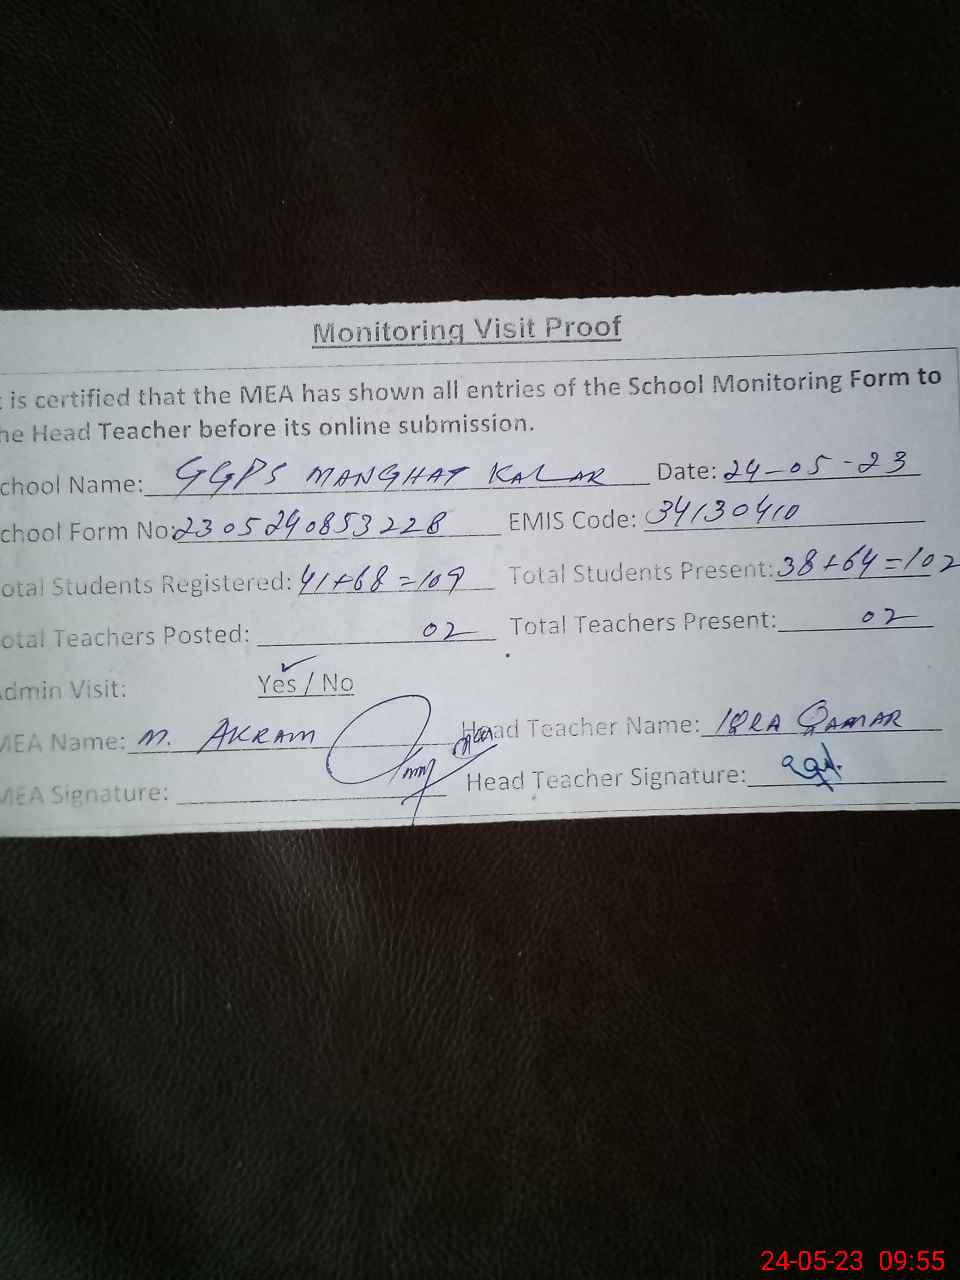 Monitoring Visit Proof
is certified that the MEA has shown all entries of the School Monitoring Form to
he Head Teacher before its online submission.
chool Name: GGPS MANGHAT KALAR Date: 24-05-23
chool Form No: 2305240853228 EMIS Code: 34130410
otal Students Registered: 41+68=109 Total Students Present: 38+64=102
otal Teachers Posted: 02 Total Teachers Present: 02
dmin Visit: Yes / No
MEA Name: M. AKRAM Head Teacher Name: IQRA QAMAR
MEA Signature: Head Teacher Signature:
24-05-23 09:55